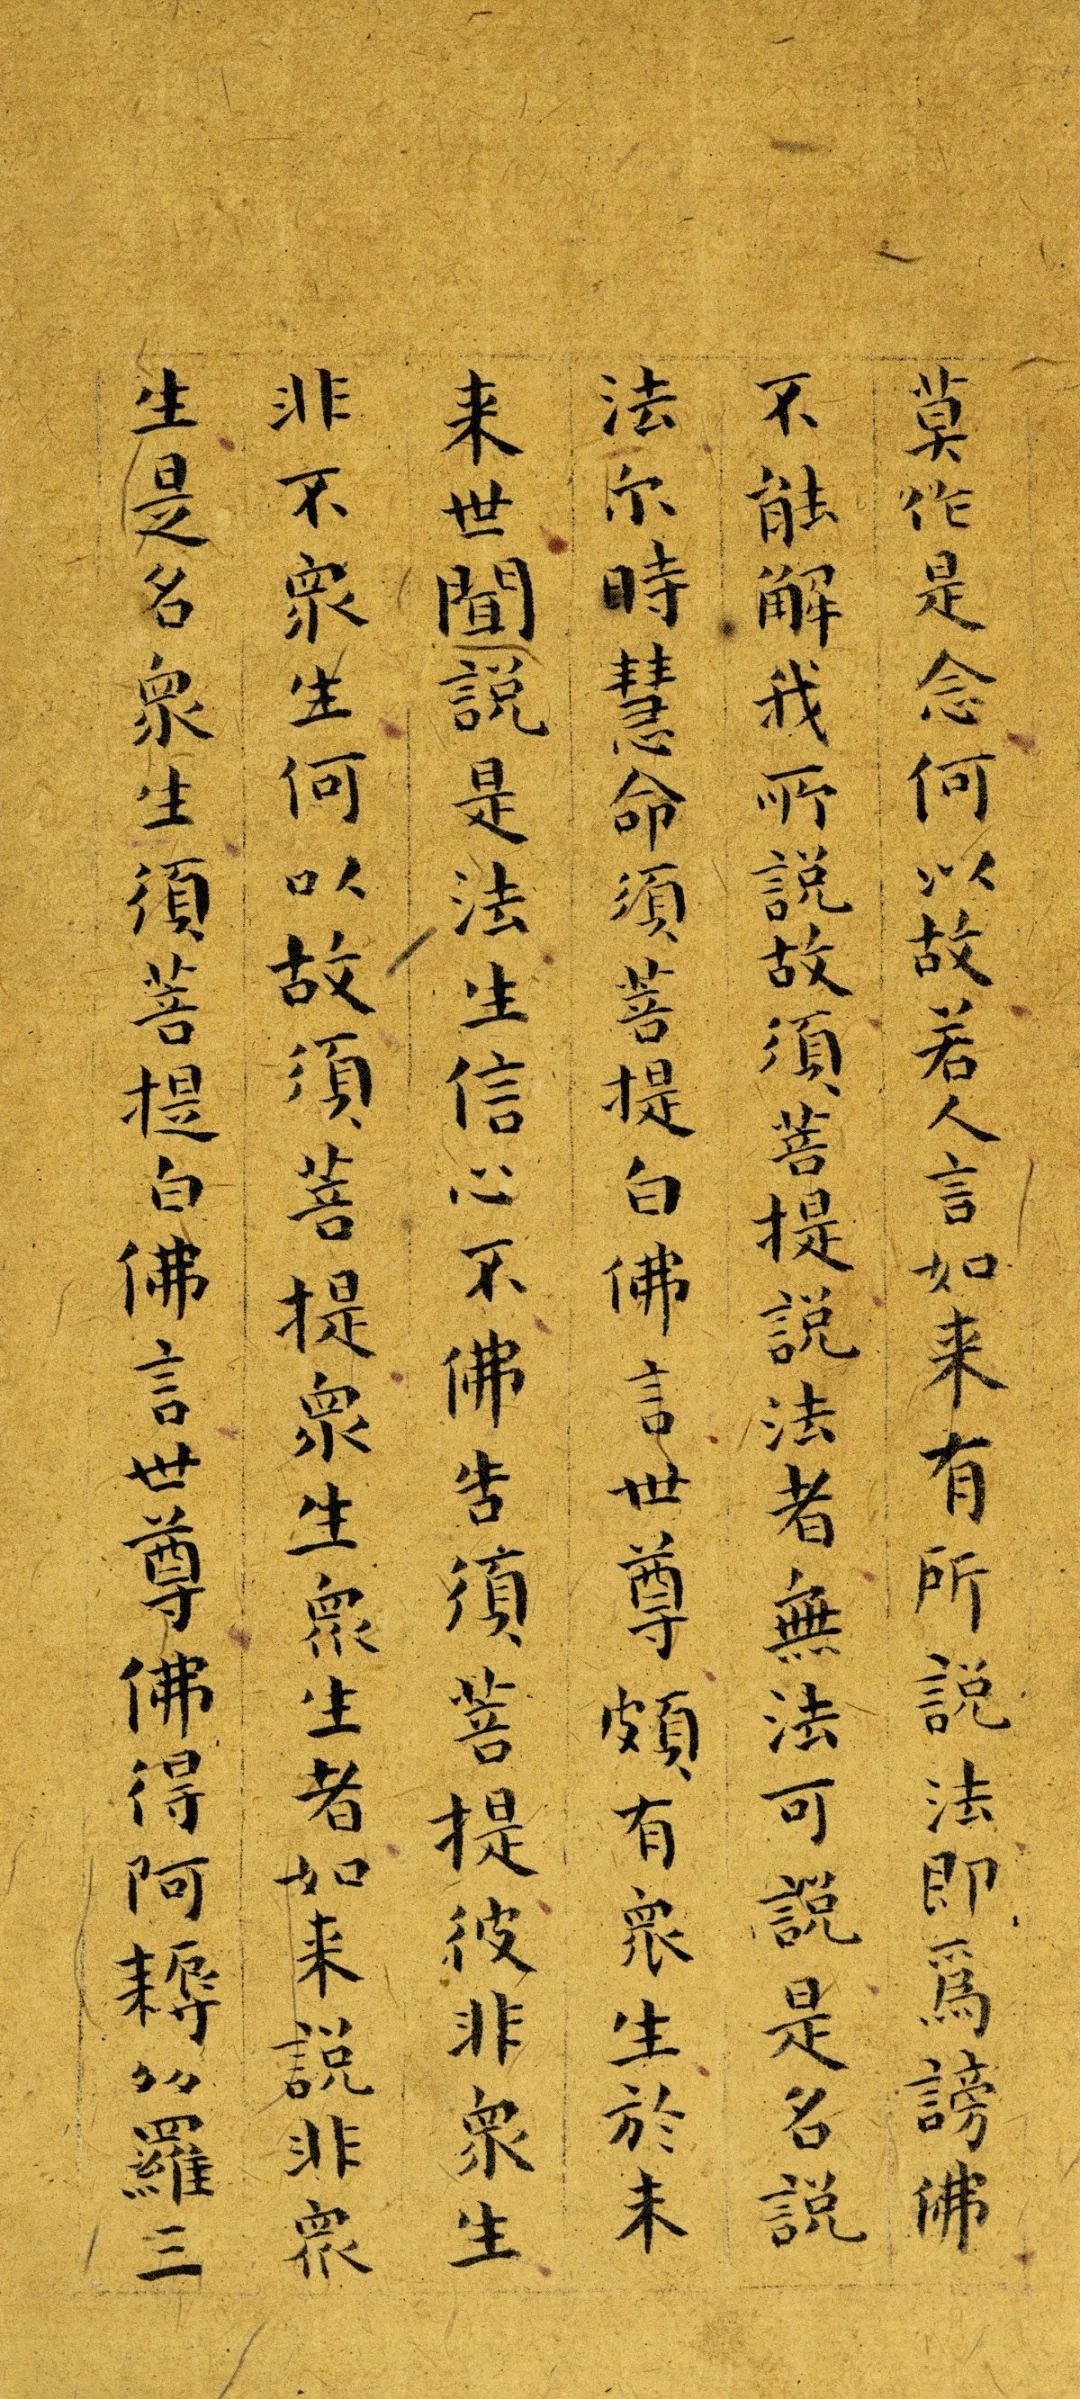 莫作是念何以故若人言如来有所説法即爲謗佛
不能解我所説故須菩提説法者無法可説是名説
法尒時慧命須菩提白佛言世尊頗有衆生於未
来世聞説是法生信心不佛告須菩提彼非衆生
非不衆生何以故須菩提衆生衆生者如来説非衆
生是名衆生須菩提白佛言世尊佛得阿耨多羅三